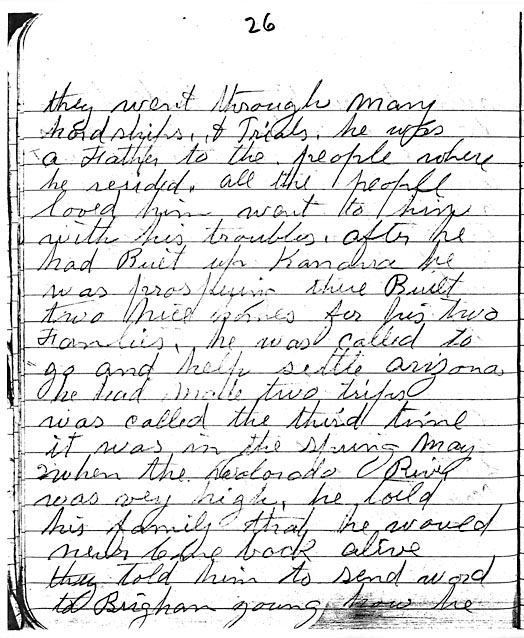 26
they went through many
hardships, & Trials. he was
a Father to the people where
he resided. all the people
loved him went to him
with his troubles. after he
had Built up Kanarra he
was there Built
two nice homes for his two
Families. he was called to
go and help settle arizona
he had made two trips
was called the third time
it was in the spring May
when the Colorado River
was very high. he told
his family that he would
never come back alive
they told him to send word
to Brigham young how he